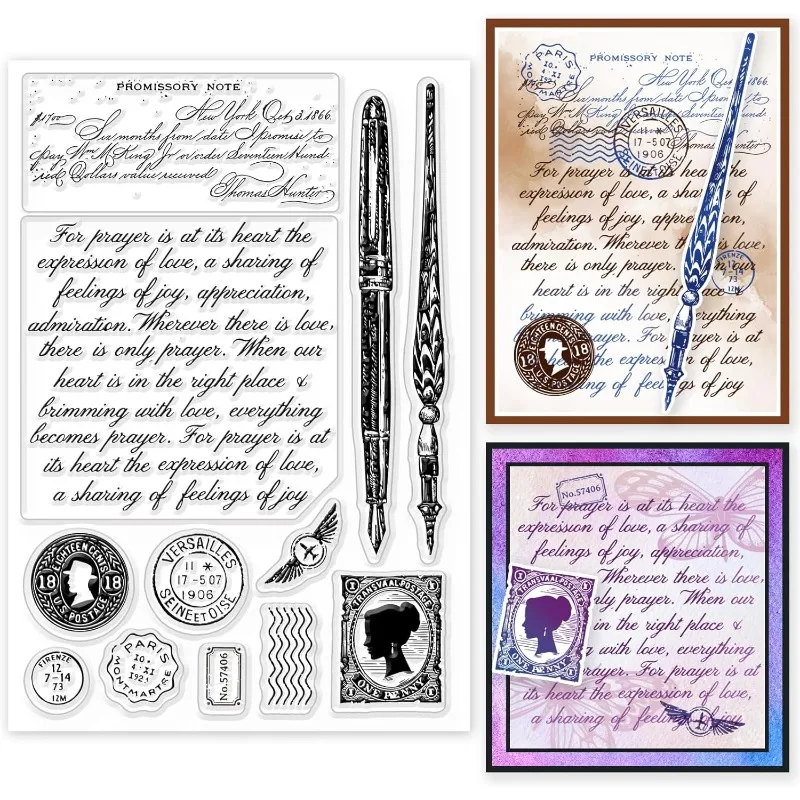 PROMISSORY NOTE
New York Oct 3, 1866.
$1700
Six months from date I promise to
pay Wm McKing Jr or order Seventeen Hund-
red Dollars value received
Thomas Hunter
For prayer is at its heart the
expression of love, a sharing of
feelings of joy, appreciation,
admiration. Wherever there is love,
there is only prayer. When our
heart is in the right place &
brimming with love, everything
becomes prayer. For prayer is at
its heart the expression of love,
a sharing of feelings of joy
EIGHTEEN CENTS
18 18
U.S. POSTAGE
VERSAILLES
11 *
17-507
1906
SEINE ETOISE
TRANSVAAL POSTAGE
ONE PENNY
FIRENZE
12
7-14
73
12M
PARIS
10.
4.XI
MONTMARTRE
No.57406
PARIS
10.
MONTMARTRE
PROMISSORY NOTE
New York Oct 1866.
Six months from date I promise to
pay Wm McKing Jr or order Seventeen
Dollars value received
Thomas Hunter
VERSAILLES
11 *
17-507
1906
SEINE ETOISE
For prayer is at its heart the
expression of love, a sha n of
feelings of joy, appre on,
admiration. Wherever th is love,
there is only prayer. n our
heart is in the right ace &
brimming with love, erything
ayer. For prayer is at
he expres n of love,
ng of feel gs of joy
FIRENZE
12
7-14
73
12M
EIGHTEEN CENTS
18 18
U.S. POSTAGE
No.57406
For prayer is at its heart the
expression of love, a sharing of
feelings of joy, appreciation,
Wherever there is love,
nly prayer. When our
in the right place &
g with love, everything
rayer. For prayer is at
its heart the expression of love,
a sharing of feelings of joy
TRANSVAAL POSTAGE
ONE PENNY